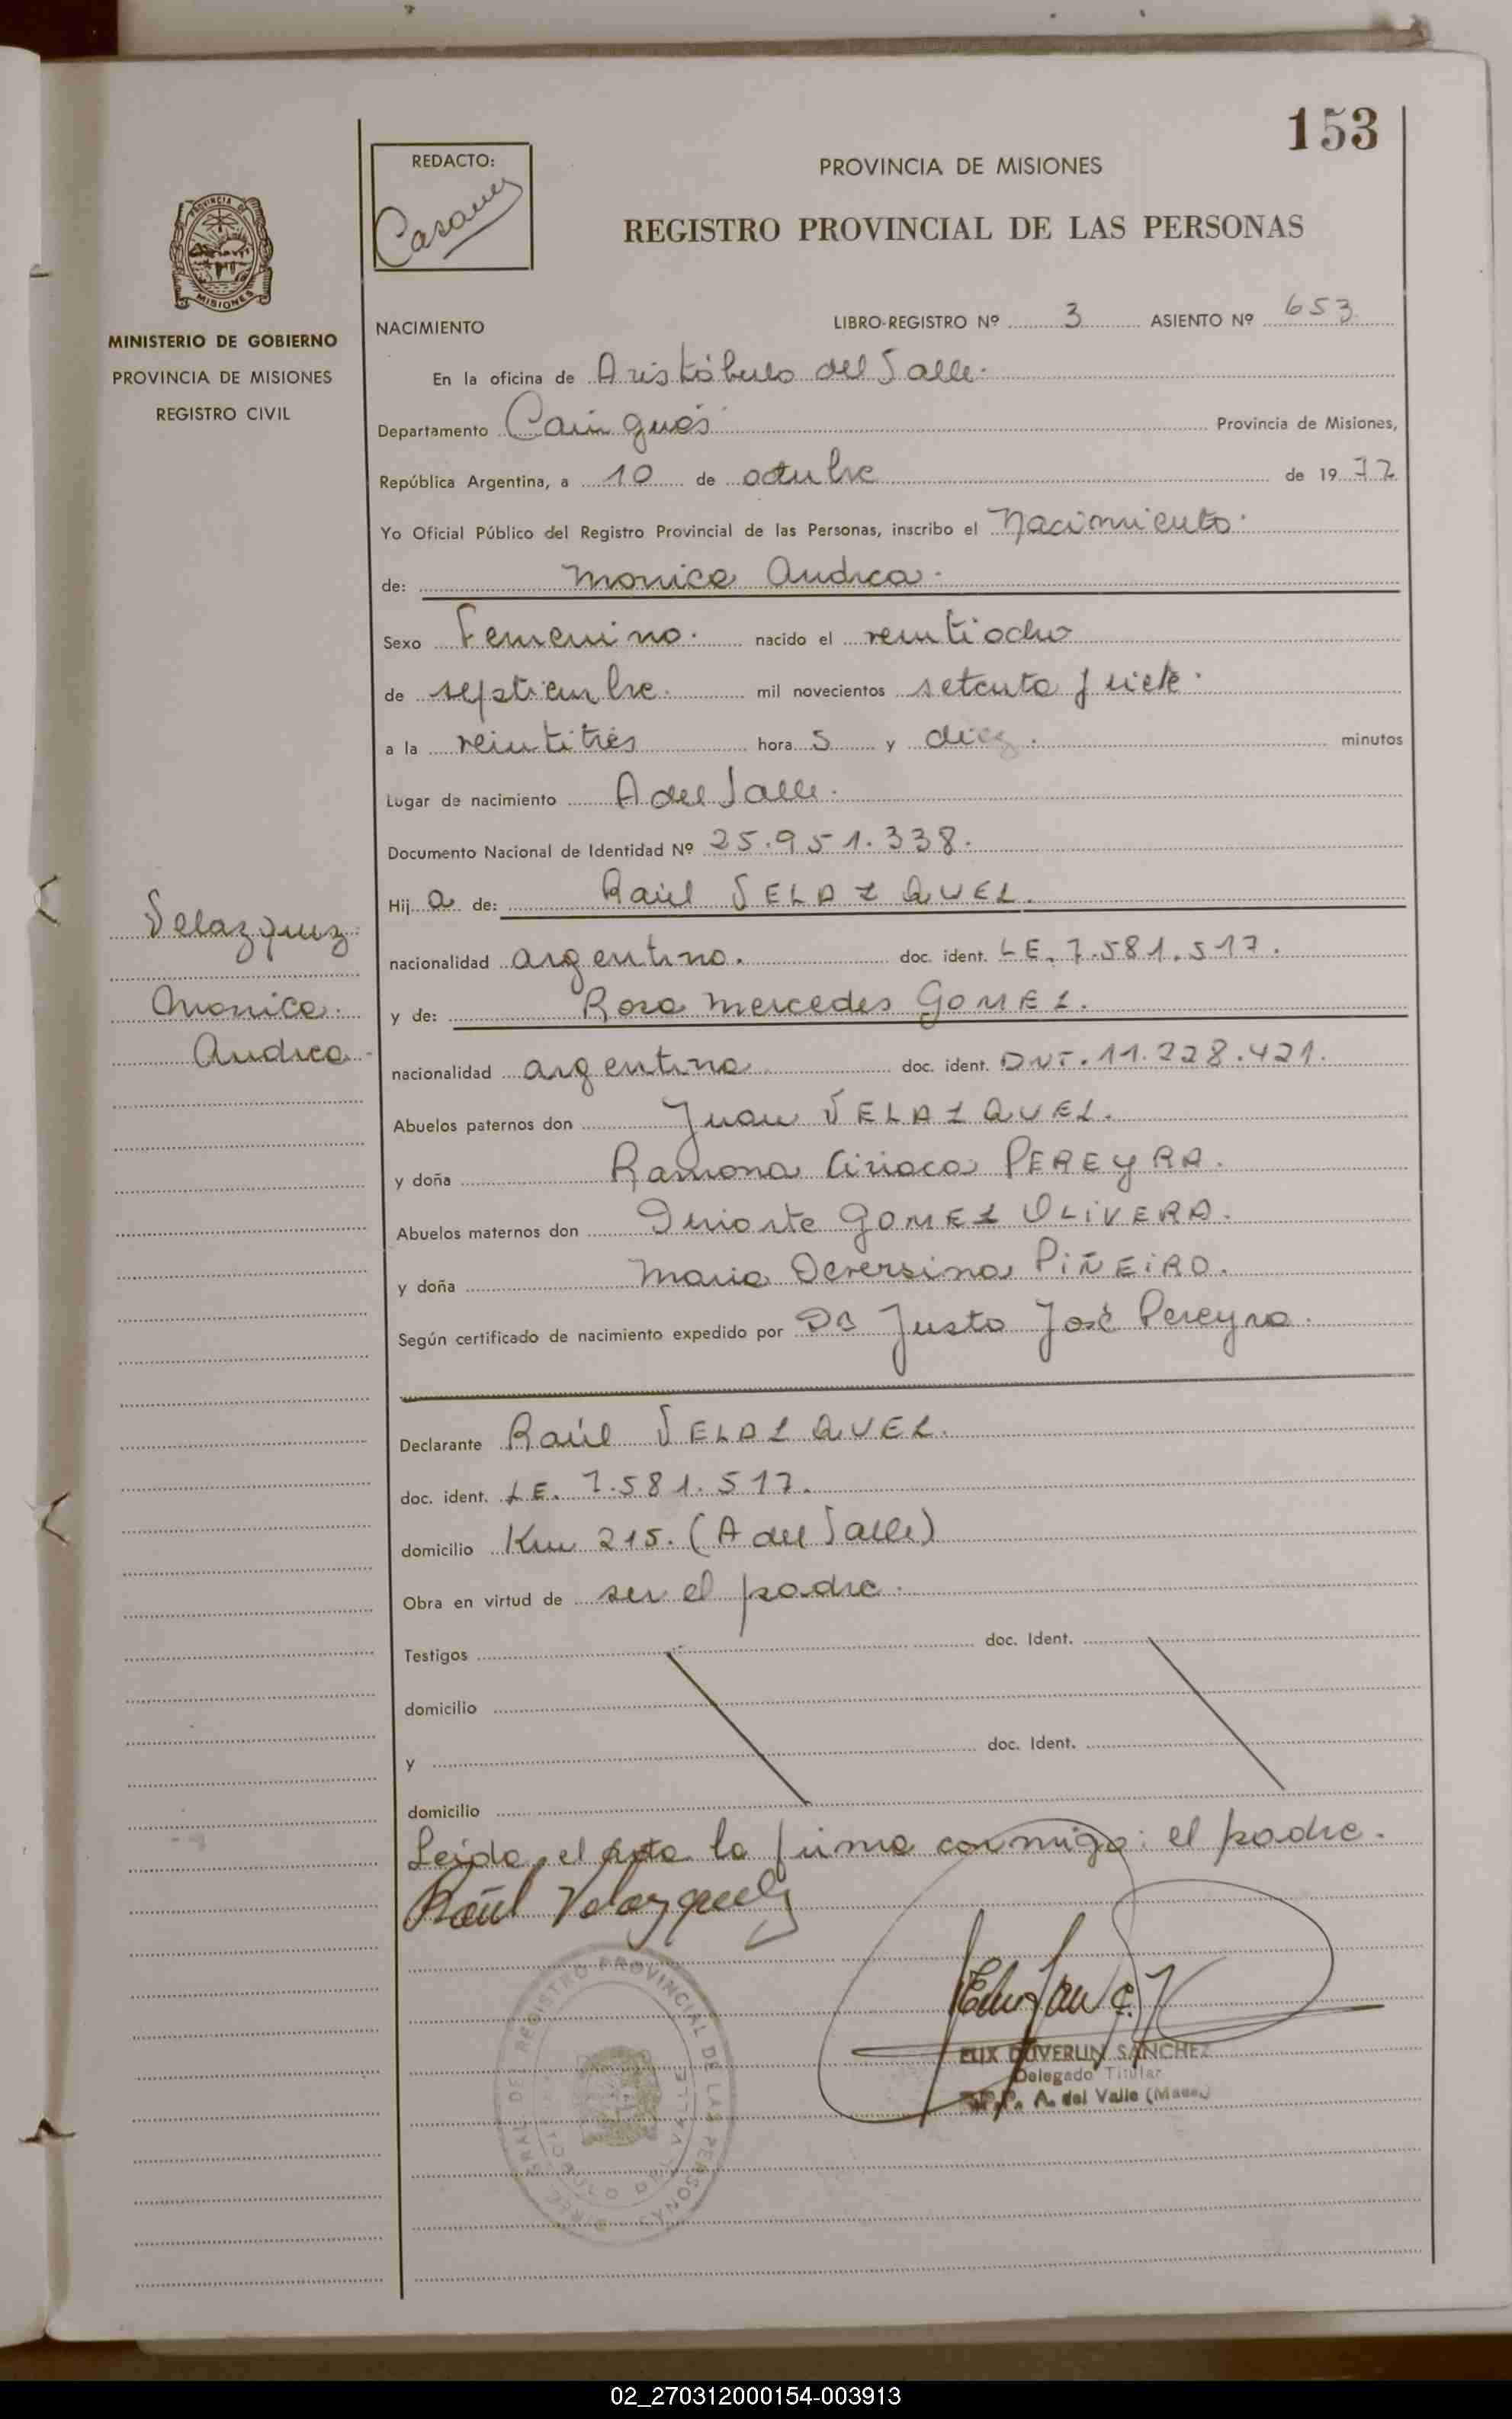 153
REDACTO:
PROVINCIA DE MISIONES
REGISTRO PROVINCIAL DE LAS PERSONAS
PROVINCIA DE
MISIONES
MINISTERIO DE GOBIERNO
PROVINCIA DE MISIONES
REGISTRO CIVIL
NACIMIENTO
LIBRO-REGISTRO Nº 3 ASIENTO Nº 653
En la oficina de Aristóbulo del Valle.
Departamento Cainguás Provincia de Misiones,
República Argentina, a 10 de octubre de 1977
Yo Oficial Público del Registro Provincial de las Personas, inscribo el Nacimiento.
de: Monica Andrea.
Sexo Femenino. nacido el veintiocho
de septiembre. mil novecientos setenta y siete.
a la veintitrés hora s y diez. minutos
Lugar de nacimiento A del Valle.
Documento Nacional de Identidad Nº 25.951.338.
Hij a de: Raúl VELAZQUEZ.
nacionalidad argentino. doc. ident. LE. 7.581.517.
y de: Rosa Mercedes GOMEZ.
nacionalidad argentina doc. ident. DNI. 11.228.421.
Abuelos paternos don Juan VELAZQUEZ.
y doña Ramona Ciriaca PEREYRA.
Abuelos maternos don GOMEZ OLIVERA.
y doña Maria PIÑEIRO.
Según certificado de nacimiento expedido por Dr Justo José Pereyra.
Velazquez
Monica
Andrea
Declarante Raúl VELAZQUEZ.
doc. ident. LE. 7.581.517.
domicilio Km 215. (A del Valle)
Obra en virtud de ser el padre.
Testigos doc. Ident.
domicilio
y doc. Ident.
domicilio
Leída el acta la firma conmigo: el padre.
Raúl Velazquez
REGISTRO PROVINCIAL DE LAS PERSONAS
SANCHEZ
Delegado Titular
A. del Valle
02_270312000154-003913